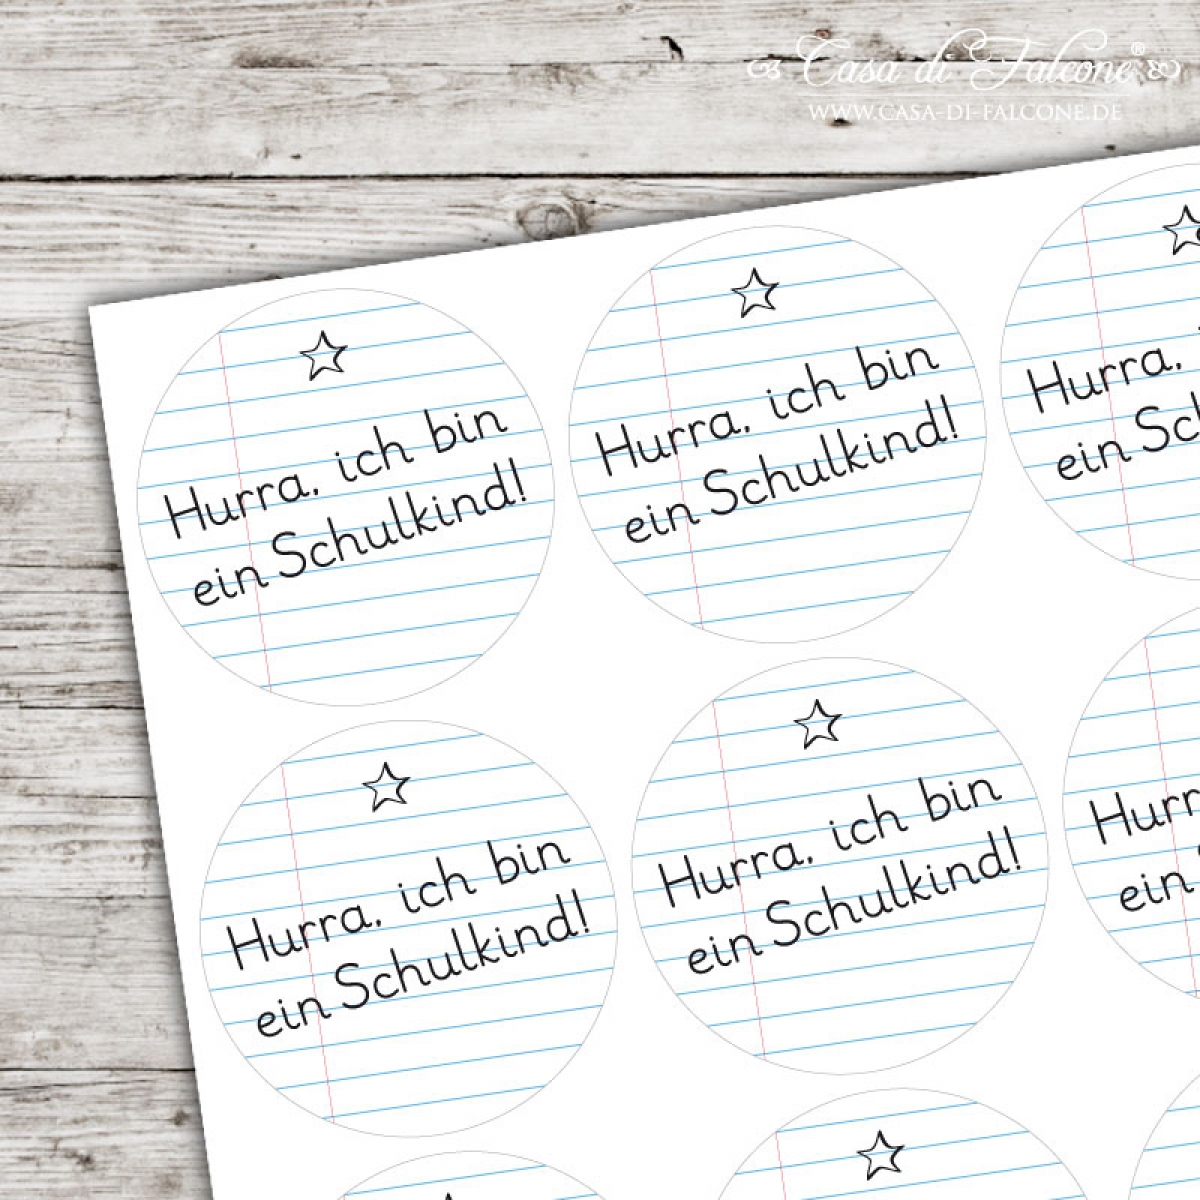 Casa di Falcone®
WWW.CASA-DI-FALCONE.DE
Hurra, ich bin
ein Schulkind!
Hurra, ich bin
ein Schulkind!
Hurra,
ein Sc
Hurra, ich bin
ein Schulkind!
Hurra, ich bin
ein Schulkind!
Hurr
ein